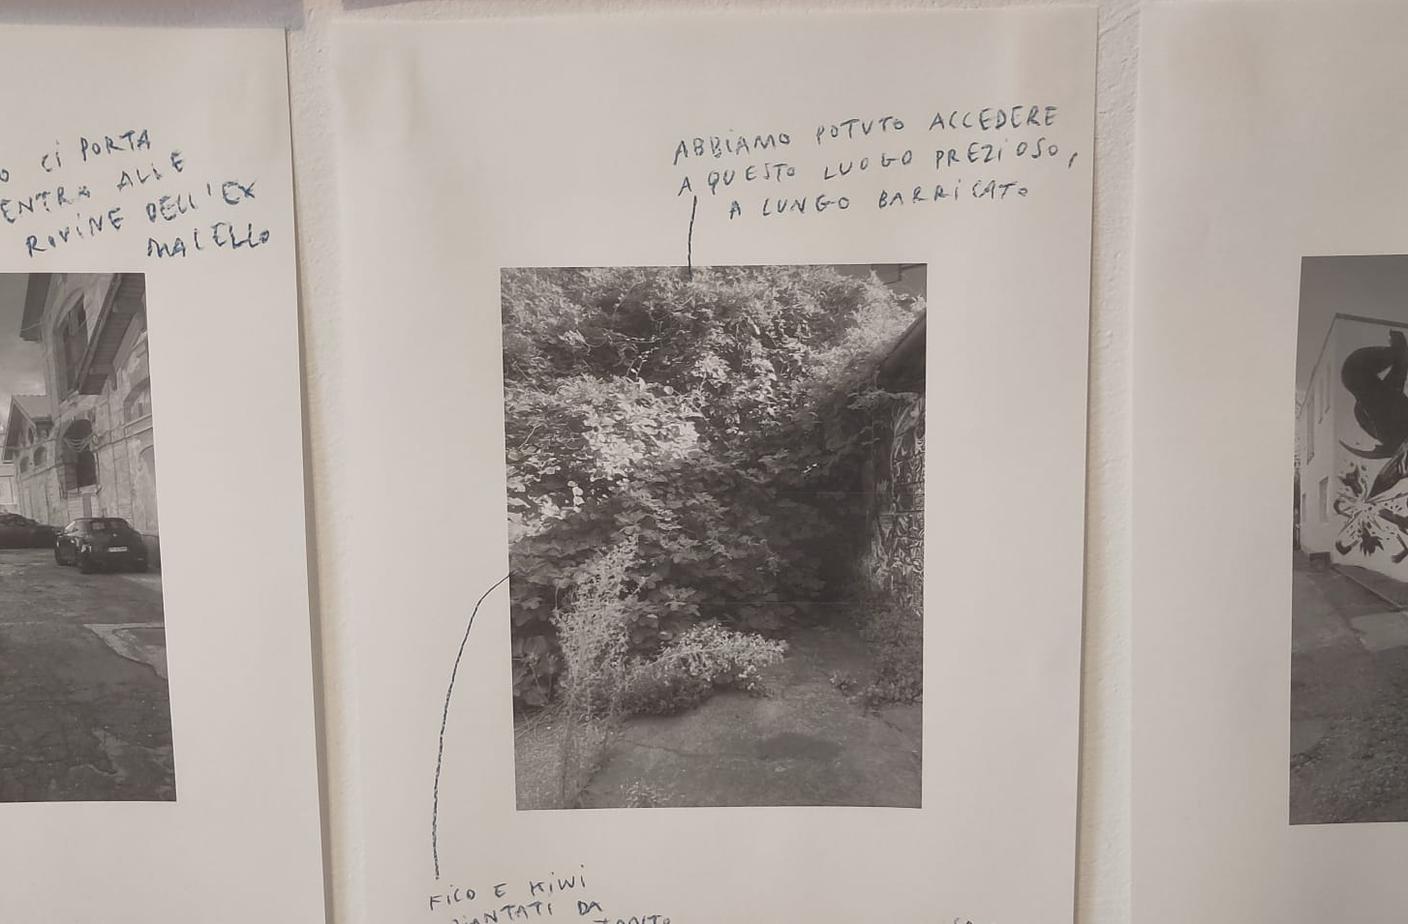 O CI PORTA
ENTRA ALLE
ROVINE DELL'EX
MACELLO
ABBIAMO POTUTO ACCEDERE
A QUESTO LUOGO PREZIOSO,
A LUNGO BARRICATO
FICO E KIWI
PIANTATI DA